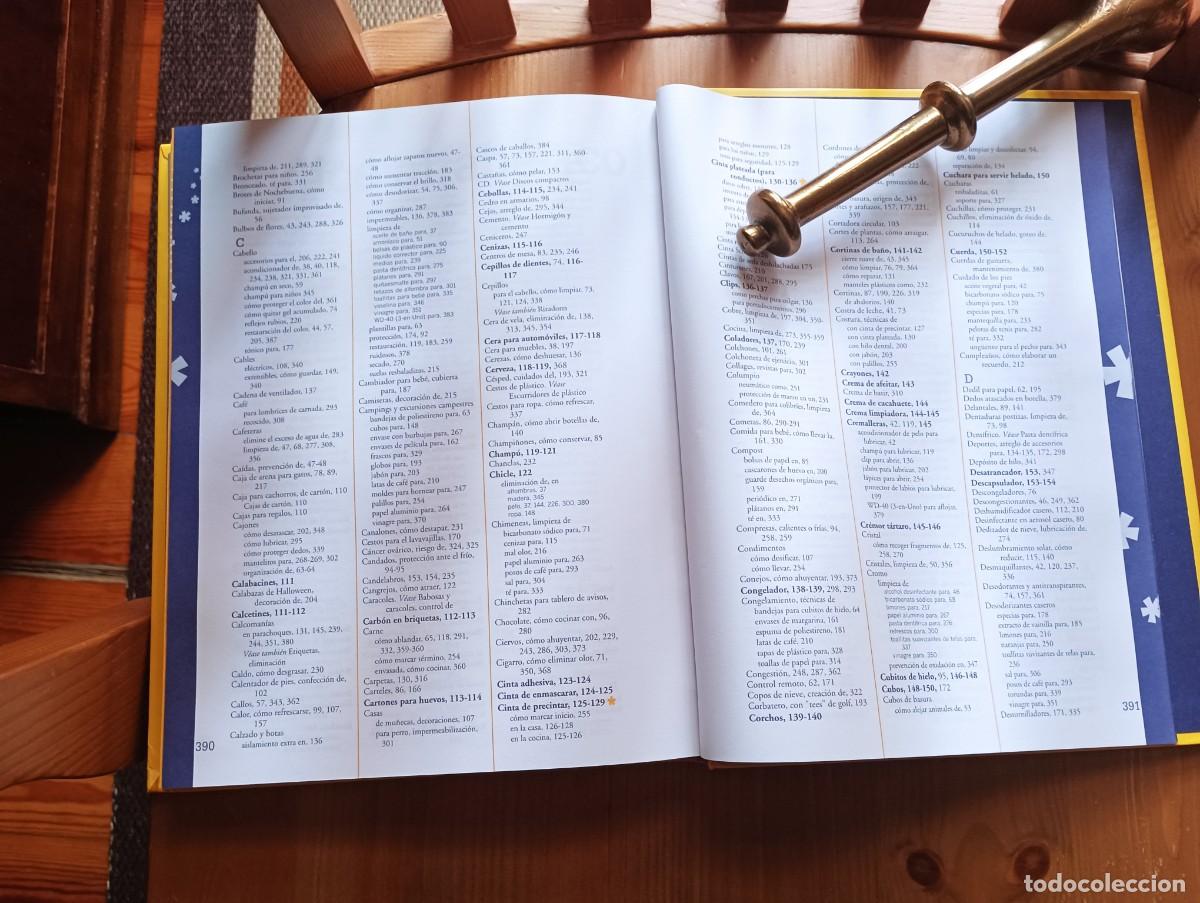 limpieza de, 211, 289, 321
Brochetas para niños, 256
Bronceado, té para, 331
Broses de Nochebuena, cómo
iniciar, 91
Bufanda, sujetador improvisado de,
56
Bulbos de flores, 43, 243, 288, 326
C
Cabello
accesorios para el, 206, 222, 241
acondicionador de, 38, 40, 118,
234, 238, 321, 331, 361
champú en seco, 59
champú para niños 345
cómo proteger el color del, 361
cómo quitar gel acumulado, 74
reflejos rubios, 220
restauración del color, 44, 57,
205, 387
tónico para, 177
Cables
eléctricos, 108, 340
extensibles, cómo guardar, 149,
340
Cadena de ventilador, 137
Café
para lombrices de carnada, 293
recosido, 308
Cafeteras
elimine el exceso de agua de, 283
limpieza de, 47, 68, 277, 308,
356
Caídas, prevención de, 47-48
Caja de arena para gatos, 78, 89,
217
Caja para cachorros, de cartón, 110
Cajas de cartón, 110
Cajas para regalos, 110
Cajones
cómo desatascar, 202, 348
cómo lubricar, 295
cómo proteger dedos, 339
mantelitos para, 268-269, 302
organización de, 63-64
Calabacines, 111
Calabazas de Halloween,
decoración de, 204
Calcetines, 111-112
Calcomanías
en parachoques, 131, 145, 239,
244, 351, 380
Véase también Etiquetas,
eliminación
Caldo, cómo desgrasar, 230
Calentador de pies, confección de,
102
Callos, 57, 343, 362
Calor, cómo refrescarse, 99, 107,
157
Calzado y botas
aislamiento extra en, 136
390
cómo aflojar zapatos nuevos, 47-
48
cómo aumentar tracción, 183
cómo conservar el brillo, 318
cómo desodorizar, 54, 75, 306,
337
cómo organizar, 287
impermeables, 136, 378, 383
limpieza de
aceite de baño para, 37
amoniaco para, 51
bolsas de plástico para, 90
líquido corrector para, 225
medius para, 239
pasta dentífrica para, 275
plátanos para, 291
quitaesmalte para, 297
retazos de alfombra para, 301
toallitas para bebé para, 335
vaselina para, 346
vinagre para, 352
WD-40 (3-en-Uno) para, 383
plantillas para, 63
protección, 174, 92
restauración, 119, 183, 259
ruidosos, 378
secado, 270
suelas resbaladizas, 215
Cambiador para bebé, cubierta
para, 187
Camisetas, decoración de, 215
Campings y excursiones campestres
bandejas de poliestireno para, 63
cubos para, 148
envase con burbujas para, 267
envases de película para, 162
frascos para, 329
globos para, 193
jabón para, 203
latas de café para, 210
moldes para hornear para, 247
palillos para, 254
papel aluminio para, 264
vinagre para, 370
Canalones, cómo destapar, 231
Cestos para el lavavajillas, 170
Cáncer ovárico, riesgo de, 324, 325
Candados, protección ante el frío,
94-95
Candelabros, 153, 154, 235
Cangrejos, cómo atraer, 122
Caracoles. Véase Babosas y
caracoles, control de
Carbón en briquetas, 112-113
Carne
cómo ablandar, 65, 118, 291,
332, 359-360
cómo marcar término, 254
envasada, cómo cocinar, 360
Carpetas, 130, 316
Carteles, 86, 166
Cartones para huevos, 113-114
Casas
de muñecas, decoraciones, 107
para perro, impermeabilización,
301
Cascos de caballos, 384
Caspa, 57, 73, 157, 221, 311, 360-
361
Castañas, cómo pelar, 153
CD. Véase Discos compactos
Cebollas, 114-115, 234, 241
Cedro en armarios, 98
Cejas, arreglo de, 295, 344
Cemento. Véase Hormigón y
cemento
Ceniceros, 247
Cenizas, 115-116
Centros de mesa, 83, 235, 246
Cepillos de dientes, 74, 116-
117
Cepillos
para el cabello, cómo limpiar, 73,
121, 124, 338
Véase también Rizadores
Cera de vela, eliminación de, 138,
313, 345, 354
Cera para automóviles, 117-118
Cera para muebles, 38, 197
Cerezas, cómo deshuesar, 136
Cerveza, 118-119, 368
Césped, cuidados del, 193, 321
Cestos de plástico. Véase
Escurridores de plástico
Cestos para ropa, cómo refrescar,
337
Champán, cómo abrir botellas de,
140
Champiñones, cómo conservar, 85
Champú, 119-121
Chanclas, 232
Chicle, 122
eliminación de, en
alfombras, 37
madera, 345
pelo, 37, 144, 226, 300, 380
ropa, 148
Chimeneas, limpieza de
bicarbonato sódico para, 71
cenizas para, 115
mal olor, 216
papel aluminio para, 263
posos de café para, 293
sal para, 304
té para, 333
Chinchetas para tablero de avisos,
282
Chocolate, cómo cocinar con, 96,
280
Ciervos, cómo ahuyentar, 202, 229,
243, 286, 303, 373
Cigarro, cómo eliminar olor, 71,
350, 368
Cinta adhesiva, 123-124
Cinta de enmascarar, 124-125
Cinta de precintar, 125-129
cómo marcar inicio, 255
en la casa, 126-128
en la cocina, 125-126
para arreglos menores, 128
para los niños, 129
para seguridad, 125-129
Cinta plateada (para
conductos), 130-136
Cintas de seda deshilachadas 175
Cinturones, 210
Clavos, 167, 201, 288, 295
Clips, 136-137
como pechas para colgar, 136
para portadocumentos, 290
Cobre, limpieza de, 197, 304, 350-
351
Cocina, limpieza de, 273, 355-359
Coladores, 137, 170, 239
Colchones, 101, 261
Colchoneta de ejercicio, 301
Collages, revistas para, 302
Columpio
neumático como, 251
protección de marco en un, 231
Comedero para colibríes, limpieza
de, 364
Cometas, 86, 290-291
Comida para bebé, cómo llevar la,
161, 330
Compost
bolsas de papel en, 85
cascarones de huevo en, 200
guarde desechos orgánicos para,
159
periódico en, 271
plátanos en, 291
té en, 333
Compresas, calientes o frías, 94,
258, 259
Condimentos
cómo dosificar, 107
cómo llevar, 254
Conejos, cómo ahuyentar, 193, 373
Congelador, 138-139, 298, 293
Congelamiento, técnicas de
bandejas para cubitos de hielo, 64
envases de margarina, 161
espuma de poliestireno, 181
latas de café, 210
tapas de plástico para, 328
toallas de papel para, 314
Congestión, 248, 287, 362
Control remoto, 62, 171
Copos de nieve, creación de, 322
Corbatero, con "tees" de golf, 193
Corchos, 139-140
Cordones de
Cortadora circular, 103
Cortes de plantas, cómo arraigar,
113, 264
Cortinas de baño, 141-142
cierre suave de, 43, 345
cómo limpiar, 76, 79, 364
cómo reparar, 131
manteles plásticos como, 232
Cortinas, 87, 190, 226, 319
de abalorios, 140
Costra de leche, 41, 73
Costura, técnicas de
con cinta de precintar, 127
con cinta plateada, 130
con hilo dental, 200
con jabón, 203
con palillos, 255
Crayones, 142
Crema de afeitar, 143
Crema de batir, 310
Crema de cacahuete, 144
Crema limpiadora, 144-145
Cremalleras, 42, 119, 145
acondicionador de pelo para
lubricar, 42
champú para lubricar, 119
clip para abrir, 136
jabón para lubricar, 202
lápices para abrir, 254
protector de labios para lubricar,
199
WD-40 (3-en-Uno) para aflojar,
379
Crémor tártaro, 145-146
Cristal
cómo recoger fragmentos de, 125,
258, 270
Cristales, limpieza de, 50, 356
Cromo
limpieza de
alcohol desinfectante para, 48
bicarbonato sódico para, 68
limones para, 217
papel aluminio para, 267
pasta dentífrica para, 276
refrescos para, 300
toallitas suavizantes de telas para,
337
vinagre para, 350
prevención de oxidación en, 347
Cubitos de hielo, 95, 146-148
Cubos, 148-150, 172
Cubos de basura
cómo alejar animales de, 53
limpiar y desinfectar, 54,
69, 80
reparación de, 134
Cuchara para servir helado, 150
Cucharas
resbaladizas, 61
soporte para, 327
Cuchillas, cómo proteger, 231
Cuchillos, eliminación de óxido de,
114
Cucuruchos de helado, goteo de,
144
Cuerda, 150-152
Cuerdas de guitarra,
mantenimiento de, 380
Cuidado de los pies
aceite vegetal para, 42
bicarbonato sódico para, 75
champú para, 120
especias para, 178
mantequilla para, 233
pelotas de tenis para, 282
té para, 332
ungüento para el pecho para, 343
Cumpleaños, cómo elaborar un
recuerdo, 212
D
Dedil para papel, 62, 195
Dedos atascados en botella, 379
Delantales, 89, 141
Dentaduras postizas, limpieza de,
73, 98
Dentífrico. Véase Pasta dentífrica
Deportes, arreglo de accesorios
para, 134-135, 172, 298
Depósito de hilo, 341
Desatrancador, 153, 347
Descapsulador, 153-154
Descongeladores, 76
Descongestionantes, 46, 249, 362
Deshumidificador casero, 112, 210
Desinfectante en aerosol casero, 80
Deslizador de nieve, lubricación de,
274
Deslumbramiento solar, cómo
reducir, 115, 140
Desmaquillantes, 42, 120, 237,
336
Desodorantes y antitranspirantes,
74, 157, 361
Desodorizantes caseros
especias para, 178
extracto de vainilla para, 185
limones para, 216
naranjas para, 250
toallitas suavizantes de telas para,
236
sal para, 306
posos de café para, 293
tortudas para, 339
vinagre para, 351
Destornilladores, 171, 335
391
todocoleccion